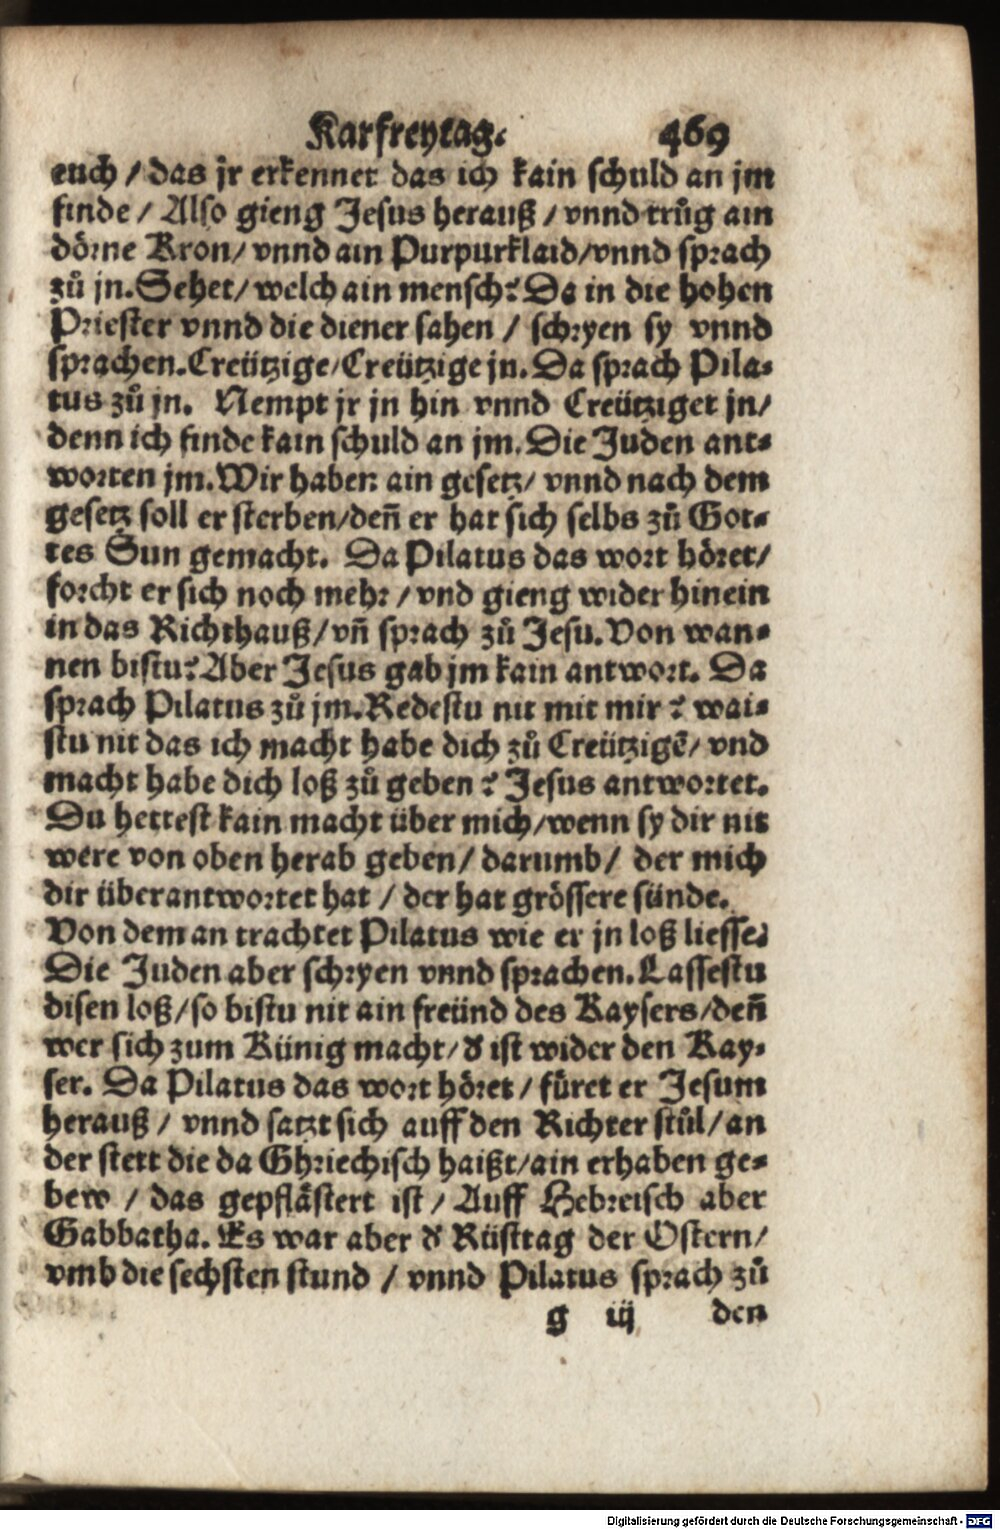 Karfreytag. 469
euch / das jr erkennet das ich kain schuld an jm
finde / Also gieng Jesus herauß / vnnd trůg ain
dörne Kron / vnnd ain Purpurklaid / vnnd sprach
zů jn. Sehet / welch ain mensch? Da in die hohen
Priester vnnd die diener sahen / schryen sy vnnd
sprachen. Creützige / Creützige jn. Da sprach Pila-
tus zů jn. Nempt jr jn hin vnnd Creütziget jn /
denn ich finde kain schuld an jm. Die Juden ant-
worten jm. Wir haben ain gesetz / vnnd nach dem
gesetz soll er sterben / deñ er hat sich selbs zů Got-
tes Sun gemacht. Da Pilatus das wort höret /
forcht er sich noch mehr / vnd gieng wider hinein
in das Richthauß / vñ sprach zů Jesu. Von wan-
nen bistu? Aber Jesus gab jm kain antwort. Da
sprach Pilatus zů jm. Redestu nit mit mir? wai-
stu nit das ich macht habe dich zů Creützigē / vnd
macht habe dich loß zů geben? Jesus antwortet.
Du hettest kain macht über mich / wenn sy dir nit
were von oben herab geben / darumb / der mich
dir überantwortet hat / der hat grössere sünde.
Von dem an trachtet Pilatus wie er jn loß liesse.
Die Juden aber schryen vnnd sprachen. Lassestu
disen loß / so bistu nit ain freünd des Kaysers / deñ
wer sich zum Künig macht / d' ist wider den Kay-
ser. Da Pilatus das wort höret / füret er Jesum
herauß / vnnd satzt sich auff den Richter stůl / an
der stett die da Ghriechisch haißt / ain erhaben ge-
bew / das gepflästert ist / Auff Hebreisch aber
Gabbatha. Es war aber d' Rüsttag der Ostern /
vmb die sechsten stund / vnnd Pilatus sprach zů
g iij den
Digitalisierung gefördert durch die Deutsche Forschungsgemeinschaft - DFG